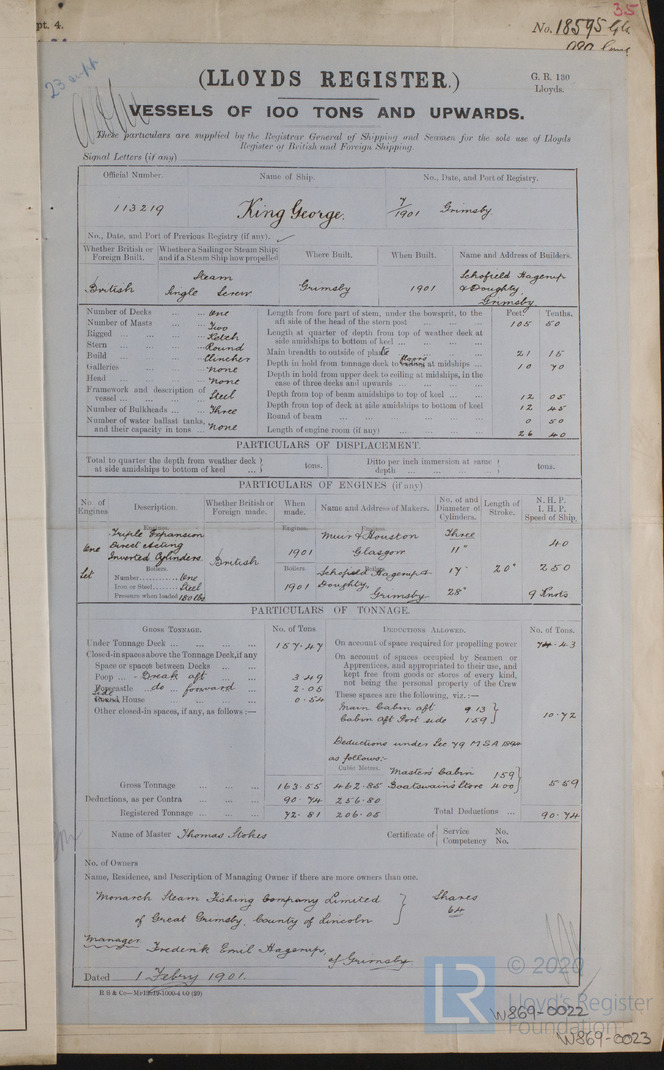 35
pt. 4.
No. 18595
23
(LLOYDS REGISTER.)
G. R. 130
Lloyds.
VESSELS OF 100 TONS AND UPWARDS.
These particulars are supplied by the Registrar General of Shipping and Seamen for the sole use of Lloyds
Register of British and Foreign Shipping
Signal Letters (if any)
Official Number. Name of Ship. No., Date, and Port of Registry.
113219 King George. 7/1901 Grimsby.
No., Date, and Port of Previous Registry (if any).
Whether British or Foreign Built. Whether a Sailing or Steam Ship; and if a Steam Ship how propelled Where Built. When Built. Name and Address of Builders.
British Steam Single Screw Grimsby 1901 Schofield Hagerup & Doughty, Grimsby
Number of Decks ... ... One
Number of Masts ... ... Two
Rigged ... ... Ketch
Stern ... ... Round
Build ... ... Clincher
Galleries ... ... none
Head ... ... none
Framework and description of vessel ... ... Steel
Number of Bulkheads ... ... Three
Number of water ballast tanks, and their capacity in tons ... none
Feet. Tenths.
Length from fore part of stem, under the bowsprit, to the aft side of the head of the stern post ... ... 105 50
Length at quarter of depth from top of weather deck at side amidships to bottom of keel ... ...
Main breadth to outside of plate ... ... 21 15
Depth in hold from tonnage deck to floors at midships ... 10 70
Depth in hold from upper deck to ceiling at midships, in the case of three decks and upwards ... ...
Depth from top of beam amidships to top of keel ... ... 12 05
Depth from top of deck at side amidships to bottom of keel 12 45
Round of beam ... ... 0 50
Length of engine room (if any) ... ... 26 40
PARTICULARS OF DISPLACEMENT.
Total to quarter the depth from weather deck at side amidships to bottom of keel ... tons. Ditto per inch immersion at same depth ... ... tons.
PARTICULARS OF ENGINES (if any)
No. of Engines Description. Whether British or Foreign made. When made. Name and Address of Makers. No. of and Diameter of Cylinders. Length of Stroke. N. H. P. I. H. P. Speed of Ship.
Engines. Engines. Engines.
One Set Triple Expansion Direct Acting Inverted Cylinders British 1901 Muir & Houston Glasgow Three 11" 17" 28" 20" 40 250 9 Knots
Boilers. Boilers. Boilers.
Number............One
Iron or Steel........Steel
Pressure when loaded 180 lbs
1901 Schofield Hagerup & Doughty, Grimsby
PARTICULARS OF TONNAGE.
GROSS TONNAGE. No. of Tons
Under Tonnage Deck ... ... 157.47
Closed-in spaces above the Tonnage Deck, if any
Space or spaces between Decks ... ...
Poop ... - Break aft ... 3.49
Forecastle ... do ... forward ... 2.05
Side House ... ... 0.54
Other closed-in spaces, if any, as follows :—
Gross Tonnage ... ... 163.55 462.85
Deductions, as per Contra ... ... 90.74 256.80
Registered Tonnage ... ... 72.81 206.05
DEDUCTIONS ALLOWED. No. of Tons.
On account of space required for propelling power 74.43
On account of spaces occupied by Seamen or Apprentices, and appropriated to their use, and kept free from goods or stores of every kind, not being the personal property of the Crew
These spaces are the following, viz.:—
Main Cabin aft 9.13
Cabin aft Port side 1.59
10.72
Deductions under Sec 79 MSA 1894
as follows:-
Cubic Metres.
Master's Cabin 1.59
Boatswain's Store 4.00
5.59
Total Deductions ... 90.74
Name of Master Thomas Stokes
Certificate of Service No.
Competency No.
No. of Owners
Name, Residence, and Description of Managing Owner if there are more owners than one.
Monarch Steam Fishing Company Limited
of Great Grimsby, County of Lincoln
Shares
64
Manager. Frederik Emil Hagerup, of Grimsby
Dated 1 Febry 1901.
© 2020
LR
Lloyd's Register
Foundation
W869-0022
W869-0023